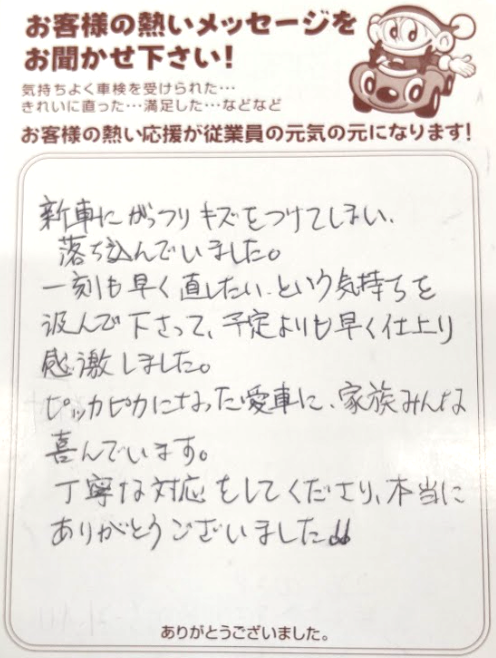 お客様の熱いメッセージを
お聞かせ下さい!
気持ちよく車検を受けられた…
きれいに直った…満足した…などなど
お客様の熱い応援が従業員の元気の元になります!
新車にがっつりキズをつけてしまい、
落ち込んでいました。
一刻も早く直したい、という気持ちを
汲んで下さって、予定よりも早く仕上り
感激しました。
ピッカピカになった愛車に、家族みんな
喜んでいます。
丁寧な対応をしてくださり、本当に
ありがとうございました!!
ありがとうございました。